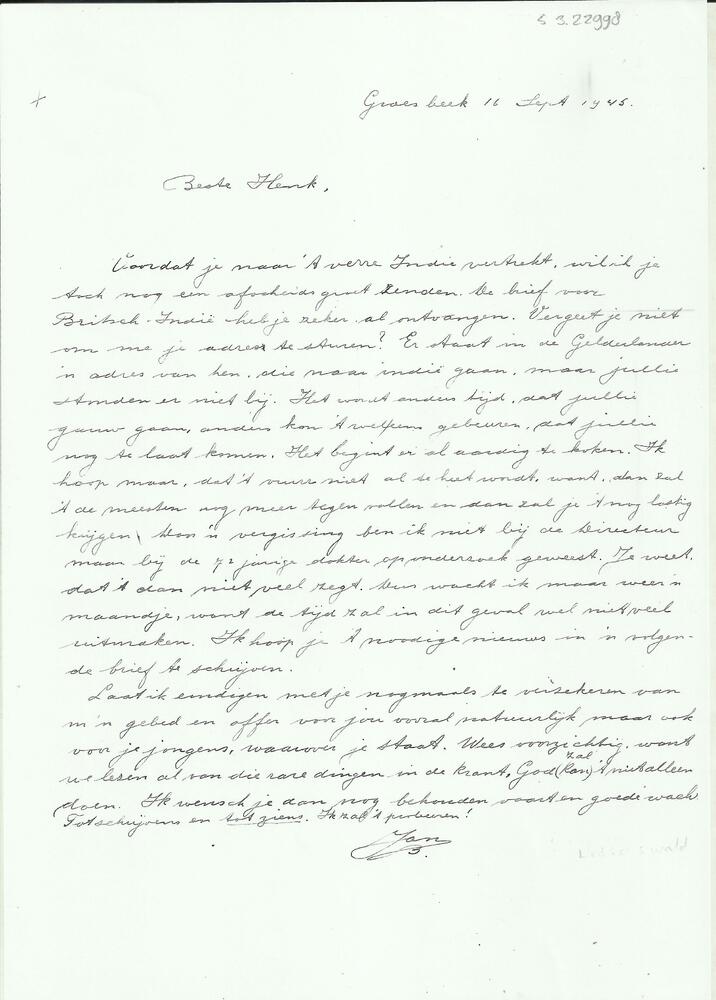 S 3.22998
Groesbeek 16 Sept 1945.
Beste Henk,
Voordat je naar 't verre Indie vertrekt, wil ik je
toch nog een afscheidsgroet zenden. De brief voor
Britsch-Indië heb je zeker al ontvangen. Vergeet je niet
om me je adres te sturen? Er staat in de Gelderlander
'n adres van hen, die naar indië gaan, maar jullie
stonden er niet bij. Het wordt anders tijd, dat jullie
gauw gaan, anders kon 't weleens gebeuren, dat jullie
nog te laat komen. Het begint er al aardig te koken. Ik
hoop maar, dat 't vuur niet al te heet wordt, want, dan zal
't de meesten nog meer tegen vallen en dan zal je 't nog lastig
krijgen. Door 'n vergissing ben ik niet bij de Directeur
maar bij de 72 jarige dokter op onderzoek geweest. Je weet,
dat 't dan niet veel zegt. Dus wacht ik maar weer 'n
maandje, want de tijd zal in dit geval wel niet veel
uitmaken. Ik hoop je 't noodige nieuws in 'n volgen-
de brief te schrijven.
Laat ik eindigen met je nogmaals te verzekeren van
m'n gebed en offer voor jou vooral natuurlijk maar ook
voor je jongens, waarover je staat. Wees voorzichtig, want
we lezen al van die rare dingen in de krant, God (kan) zal 't niet alleen
doen. Ik wensch je dan nog behouden vaart en goede wacht
Tot schrijvens en tot ziens. Ik zal 't proberen!
Jan